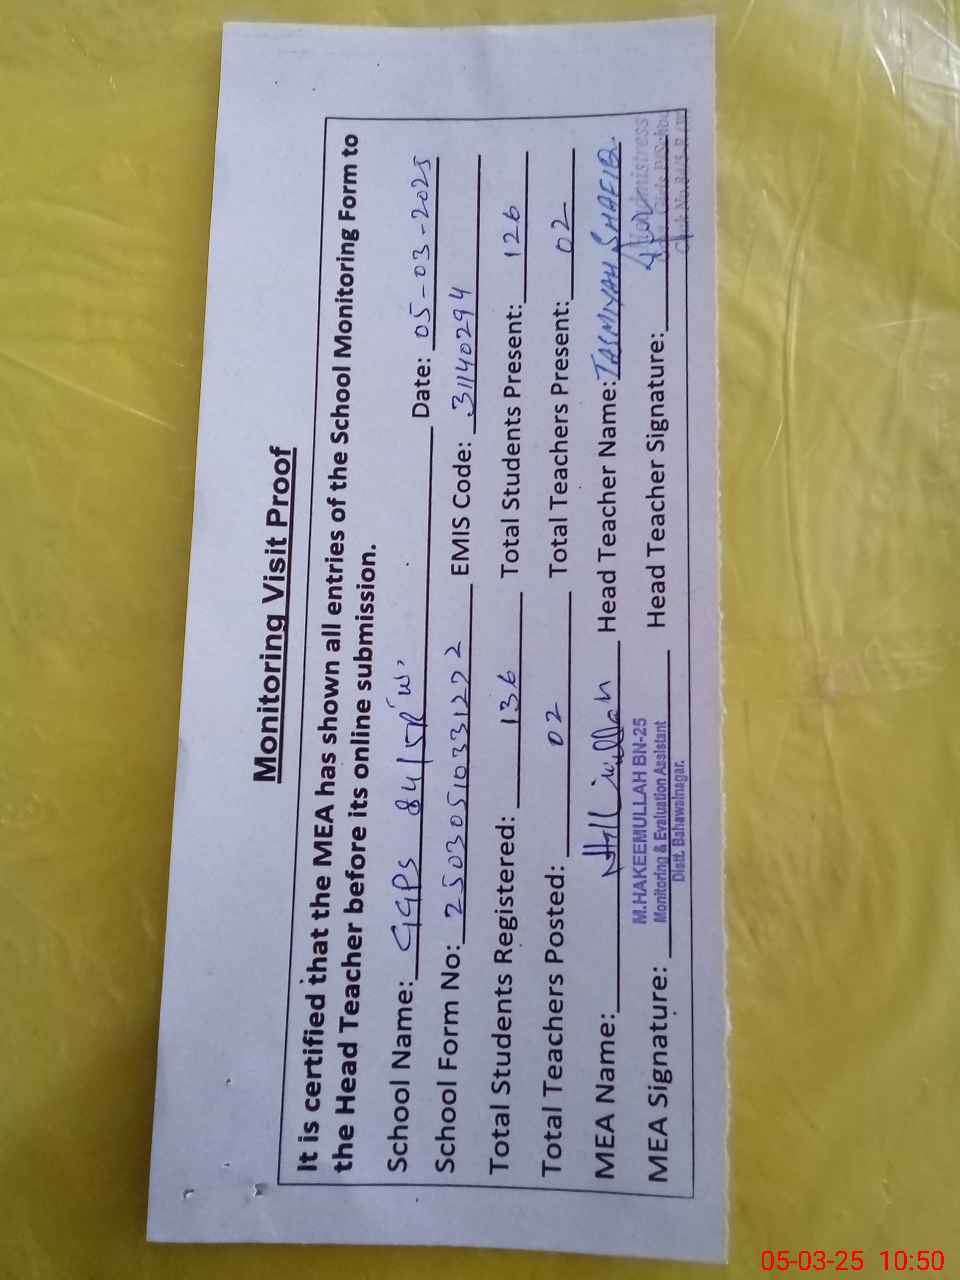 Monitoring Visit Proof
It is certified that the MEA has shown all entries of the School Monitoring Form to
the Head Teacher before its online submission.
School Name: GGPS 84/5R 'W' Date: 05-03-2025
School Form No: 25030510331272 EMIS Code: 31140294
Total Students Registered: 136 Total Students Present: 126
Total Teachers Posted: 02 Total Teachers Present: 02
MEA Name: Head Teacher Name: TASMIYAH SHAFIQ.
M.HAKEEMULLAH BN-25
Monitoring & Evaluation Assistant
Distt. Bahawalnagar.
MEA Signature: Head Teacher Signature:
Headmistress
05-03-25 10:50